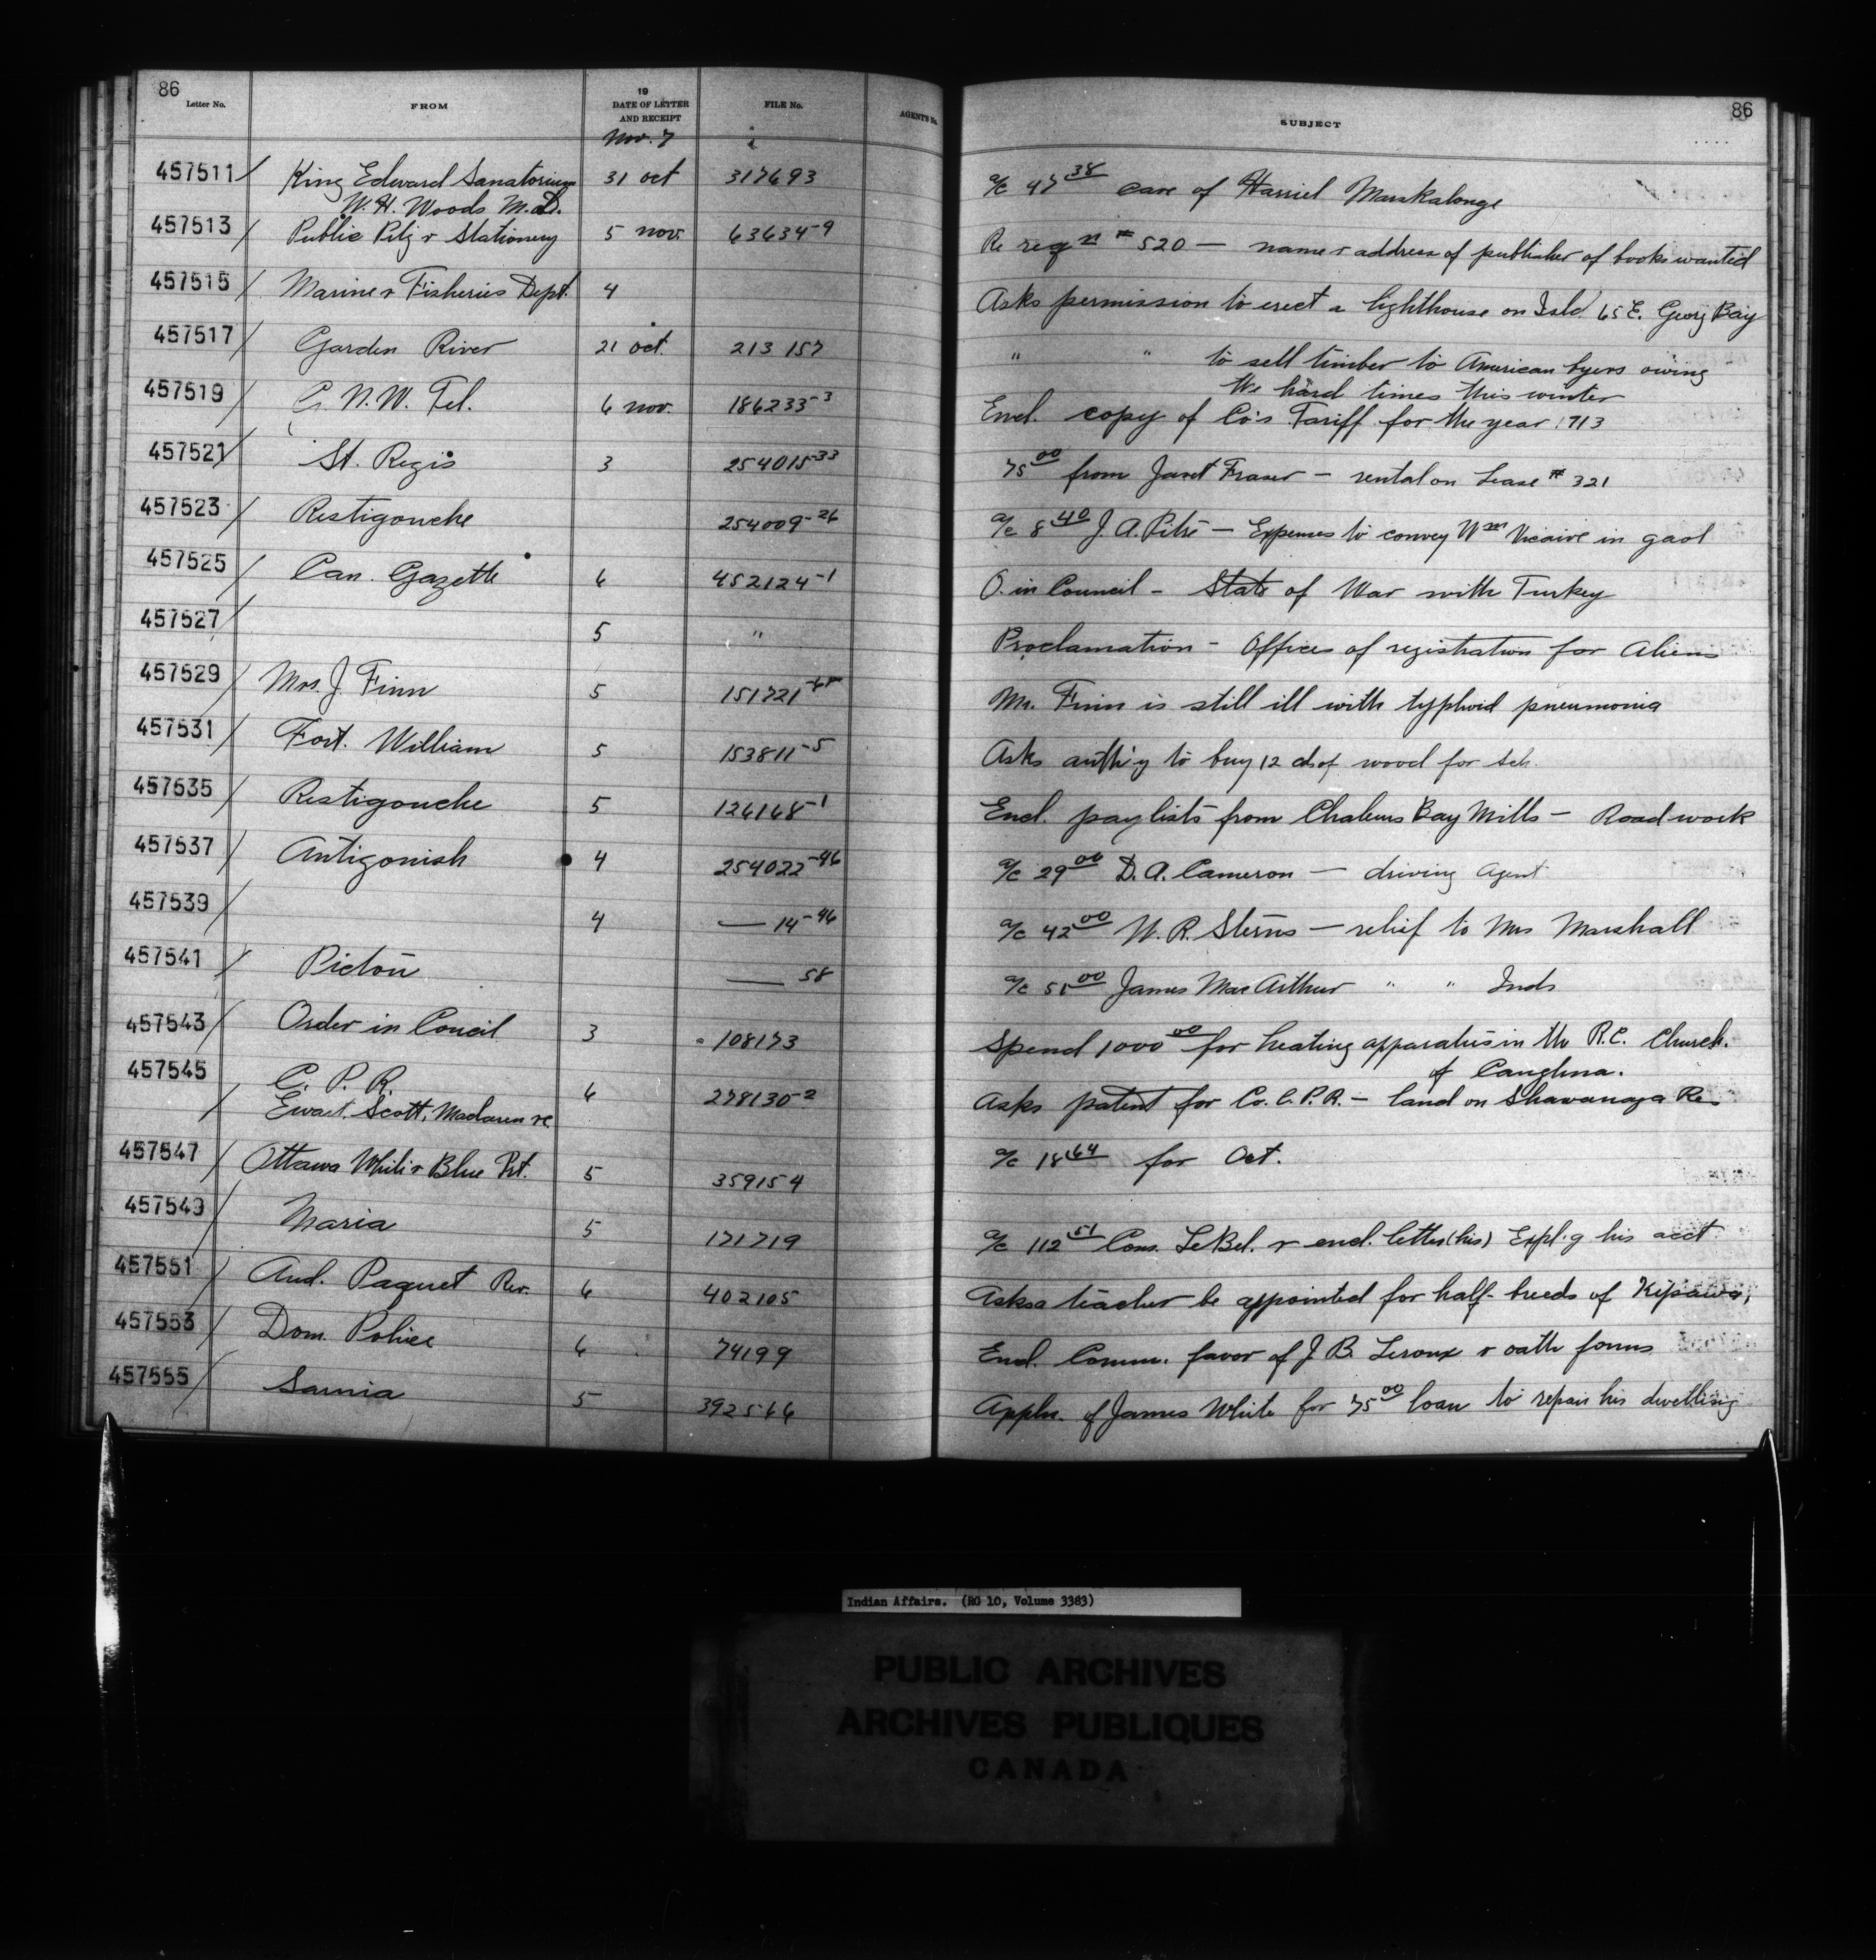 86
Letter No. FROM 19 DATE OF LETTER AND RECEIPT FILE No. AGENT'S No. SUBJECT
86
Nov. 7
457511 King Edward Sanatorium 31 Oct 317693 a/c 47 38 care of Harriet Marskalonge
W. H. Woods M.D.
457513 Public Ptg r Stationery 5 Nov. 63634-9 Re reqn # 520 — name r address of publisher of books wanted
457515 Marine r Fisheries Dept. 4 Asks permission to erect a lighthouse on Isld. 65 E. Georg Bay
457517 Garden River 21 Oct. 213157 " " to sell timber to American byers owing
the hard times this winter
457519 G. N. W. Tel. 6 Nov. 186233-3 Encl. copy of Co's Tariff for the year 1913
457521 St. Regis 3 254015-33 75 00 from Janet Fraser — rental on Lease # 321
457523 Restigouche 254009-26 a/c 8 40 J. A. Pitre — Expenses to convey Wm Vicaire in gaol
457525 Can. Gazette 6 452124-1 O. in Council - State of War with Turkey
457527 5 " Proclamation - Offices of registration for Aliens
457529 Mrs. J. Finn 5 151721 Mr. Finn is still ill with typhoid pneumonia
457531 Fort. William 5 153811-5 Asks auth'y to buy 12 cds of wood for Sch.
457535 Restigouche 5 126168-1 Encl. paylists from Chaleurs Bay Mills — Roadwork
457537 Antigonish 4 254022-46 a/c 29 00 D. A. Cameron — driving Agent
457539 4 — 14-46 a/c 42 00 W. R. Sterns — relief to Mrs Marshall
457541 Pictou — 58 a/c 51 00 James MacArthur " " Inds
457543 Order in Concil 3 108173 Spend 1000 00 for heating apparatus in the R.C. Church.
of Caughna.
457545 C. P. R. 6 278130-2 Asks patent for Co. C.P.R. — land on Shawanaga Re.
Ewart, Scott, Maclaren rc
457547 Ottawa White r Blue Prt. 5 359154 a/c 18 64 for Oct.
457549 Maria 5 171719 a/c 112 51 Cons. LeBel. r encl. letter (his) Expl.g his acct
457551 And. Paquet Rev. 6 402105 Asks a teacher be appointed for half-breeds of Kipawa,
457553 Dom. Police 6 74199 Encl. Comm. favor of J. B. Leroux r oath forms
457555 Sarnia 5 392566 Appln. of James White for 75 00 loan to repair his dwelling
Indian Affairs. (RG 10, Volume 3383)
PUBLIC ARCHIVES
ARCHIVES PUBLIQUES
CANADA